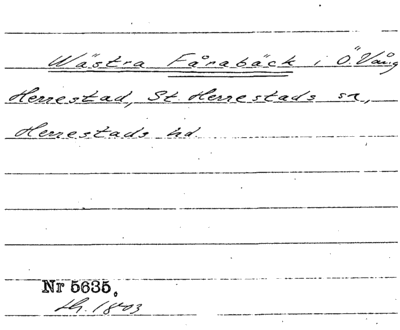 Wästra Fårabäck i Ö Vång
Herrestad, St Herrestads sn,
Herrestads hd
Nr 5635.
1803